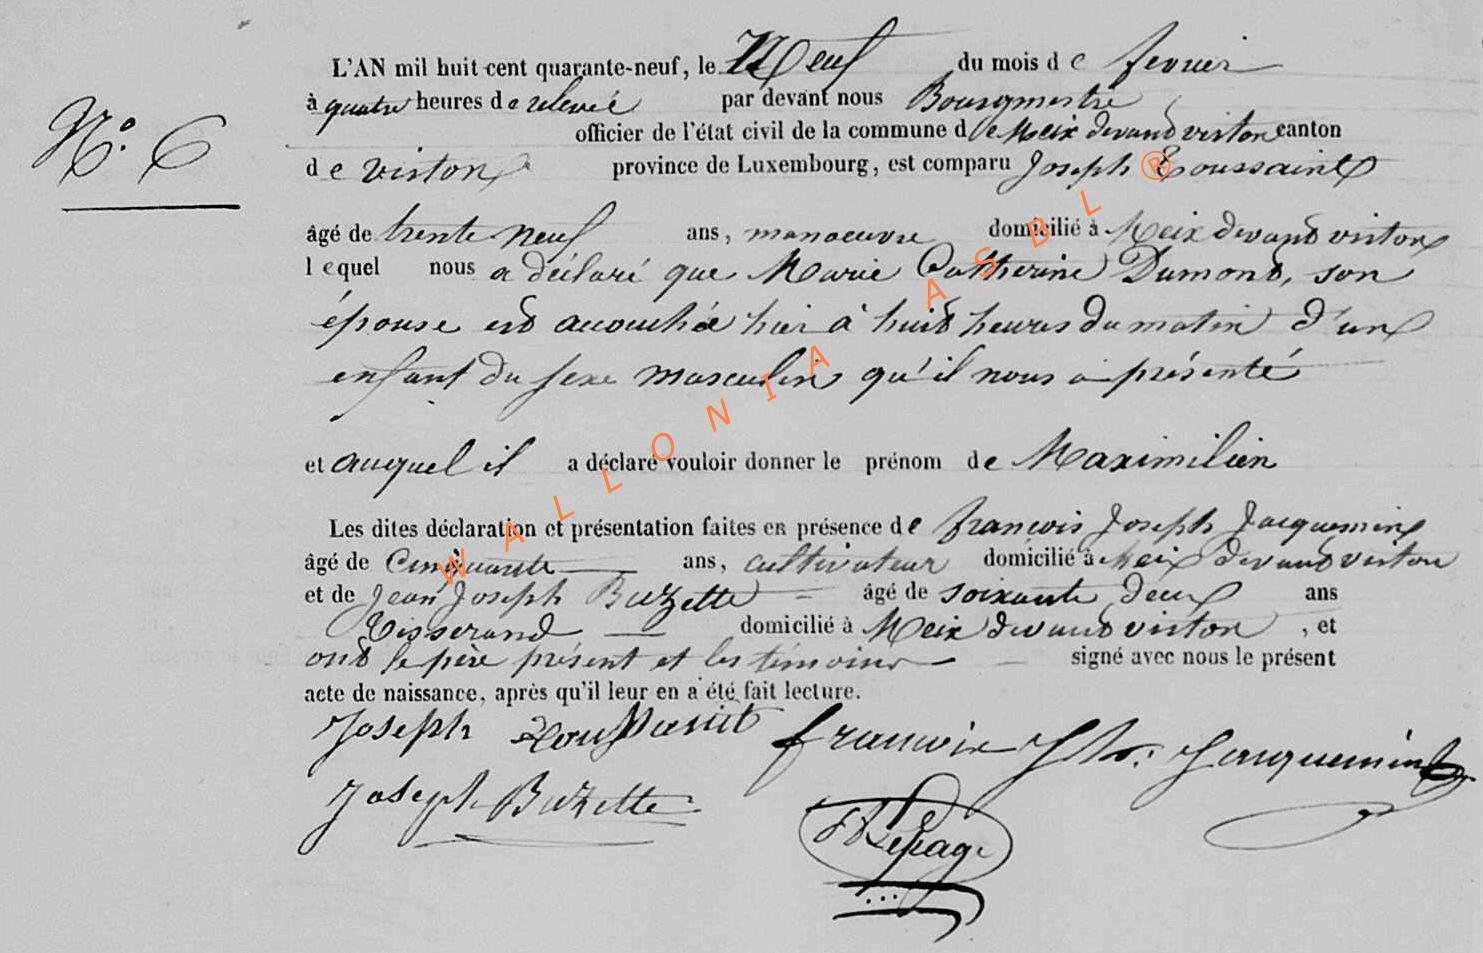 L'AN mil huit cent quarante-neuf, le Neuf du mois de fevrier
à quatre heures de relevée par devant nous Bourgmestre
N° 6
officier de l'état civil de la commune de Meix devand virton canton
de virton province de Luxembourg, est comparu Joseph Toussaint
âgé de trente neuf ans, manoeuvre domicilié à Meix devand virton
lequel nous a déclaré que Marie Catherine Dumond, son
épouse est accouchée hier à huit heures du matin d'un
enfant du sexe masculin qu'il nous a présenté
et auquel il a déclaré vouloir donner le prénom de Maximilien
Les dites déclaration et présentation faites en présence de francois Joseph Jacquemin
âgé de Cinquante ans, cultivateur domicilié à Meix devand virton
et de Jean Joseph Buzette âgé de soixante deux ans
Tisserand domicilié à Meix devand virton, et
ont le père présent et les témoins signé avec nous le présent
acte de naissance, après qu'il leur en a été fait lecture.
Joseph Toussaint francois Jh. Jacquemin
Joseph Buzette
Lepage
WALLONIA ASBL ®